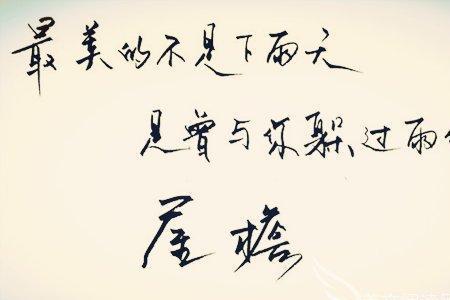 最美的不是下雨天
是曾与你躲过雨
屋檐